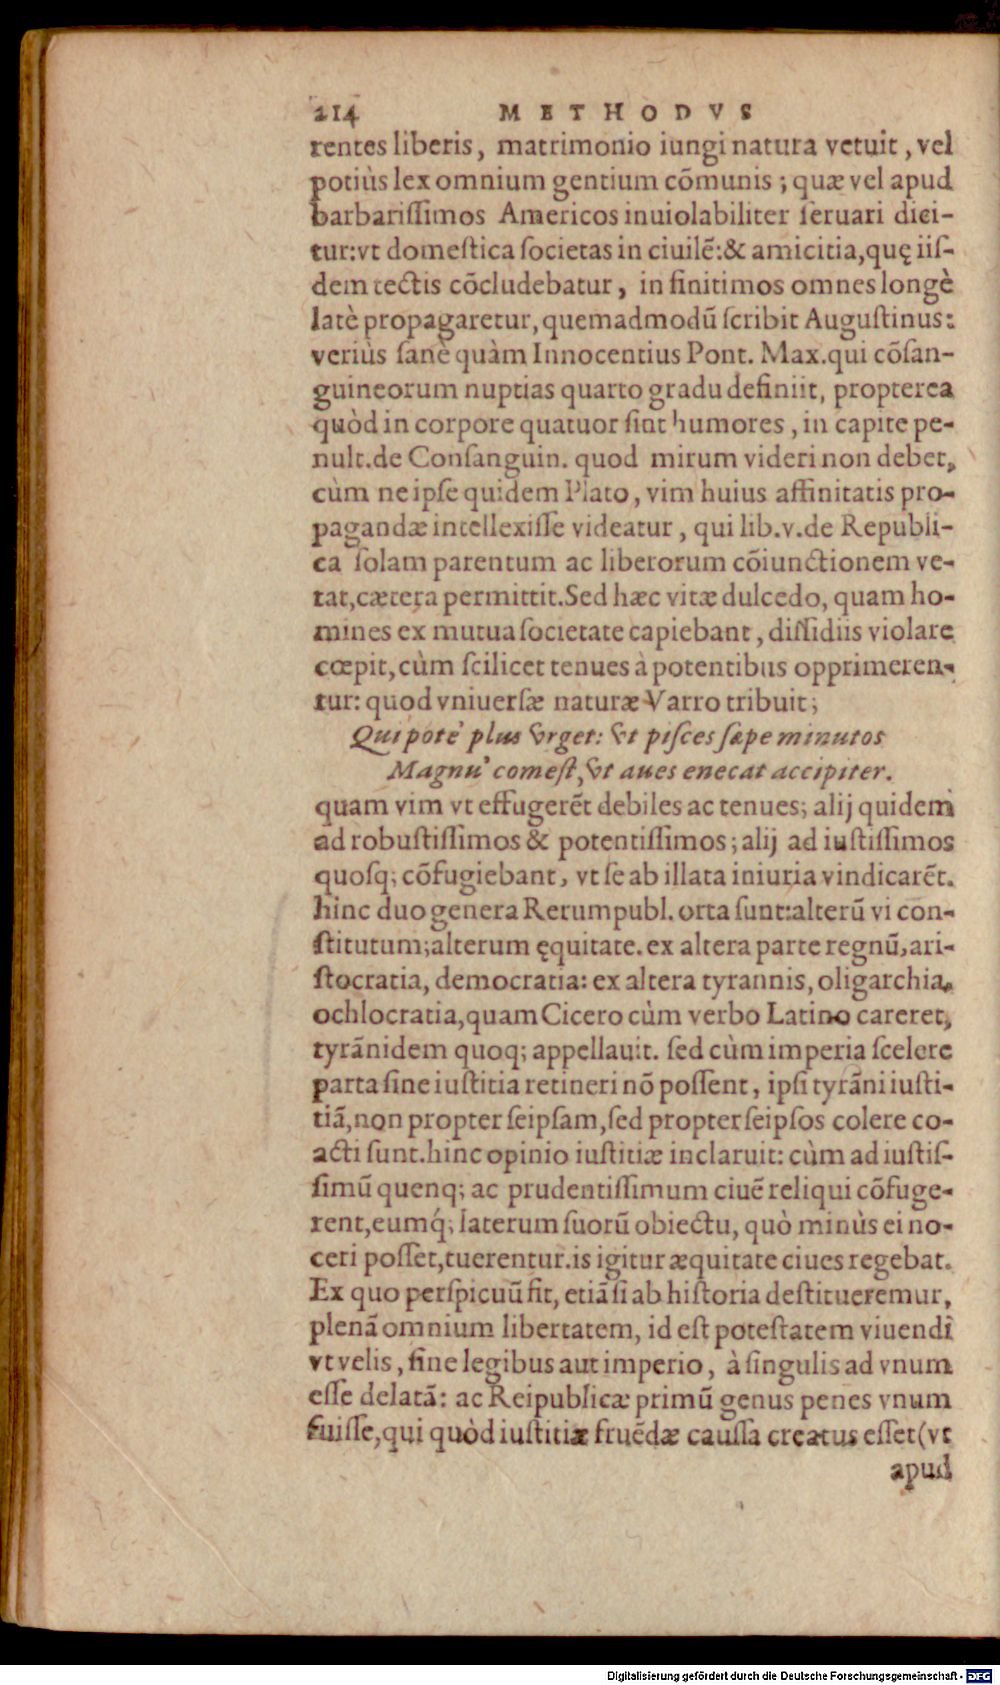 214 METHODVS
rentes liberis, matrimonio iungi natura vetuit, vel
potiùs lex omnium gentium cõmunis; quæ vel apud
barbarissimos Americos inuiolabiliter seruari dici-
tur: vt domestica societas in ciuilẽ: & amicitia, quę iis-
dem tectis cõcludebatur, in finitimos omnes longè
latè propagaretur, quemadmodũ scribit Augustinus:
veriùs sanè quàm Innocentius Pont. Max. qui cõsan-
guineorum nuptias quarto gradu definiit, propterea
quòd in corpore quatuor sint humores, in capite pe-
nult. de Consanguin. quod mirum videri non debet,
cùm ne ipse quidem Plato, vim huius affinitatis pro-
pagandæ intellexisse videatur, qui lib. v. de Republi-
ca solam parentum ac liberorum cõiunctionem ve-
tat, cætera permittit. Sed hæc vitæ dulcedo, quam ho-
mines ex mutua societate capiebant, dissidiis violare
cœpit, cùm scilicet tenues à potentibus opprimeren-
tur: quod vniuersæ naturæ Varro tribuit;
Qui pote plus vrget: vt pisces sæpe minutos
Magnu' comest, vt aues enecat accipiter.
quam vim vt effugerẽt debiles ac tenues; alij quidem
ad robustissimos & potentissimos; alij ad iustissimos
quosq; cõfugiebant, vt se ab illata iniuria vindicarẽt.
hinc duo genera Rerumpubl. orta sunt: alterũ vi con-
stitutum; alterum ęquitate. ex altera parte regnũ, ari-
stocratia, democratia: ex altera tyrannis, oligarchia,
ochlocratia, quam Cicero cùm verbo Latino careret,
tyrãnidem quoq; appellauit. sed cùm imperia scelere
parta sine iustitia retineri nõ possent, ipsi tyrãni iusti-
tiã, non propter seipsam, sed propter seipsos colere co-
acti sunt. hinc opinio iustitiæ inclaruit: cùm ad iustis-
simũ quenq; ac prudentissimum ciuẽ reliqui cõfuge-
rent, eumq́; laterum suorũ obiectu, quò minùs ei no-
ceri posset, tuerentur. is igitur æquitate ciues regebat.
Ex quo perspicuũ fit, etiã si ab historia destitueremur,
plenã omnium libertatem, id est potestatem viuendi
vt velis, sine legibus aut imperio, à singulis ad vnum
esse delatã: ac Reipublicæ primũ genus penes vnum
fuisse, qui quòd iustitiæ fruẽdæ caussa creatus esset (vt
apud
Digitalisierung gefördert durch die Deutsche Forschungsgemeinschaft - DFG